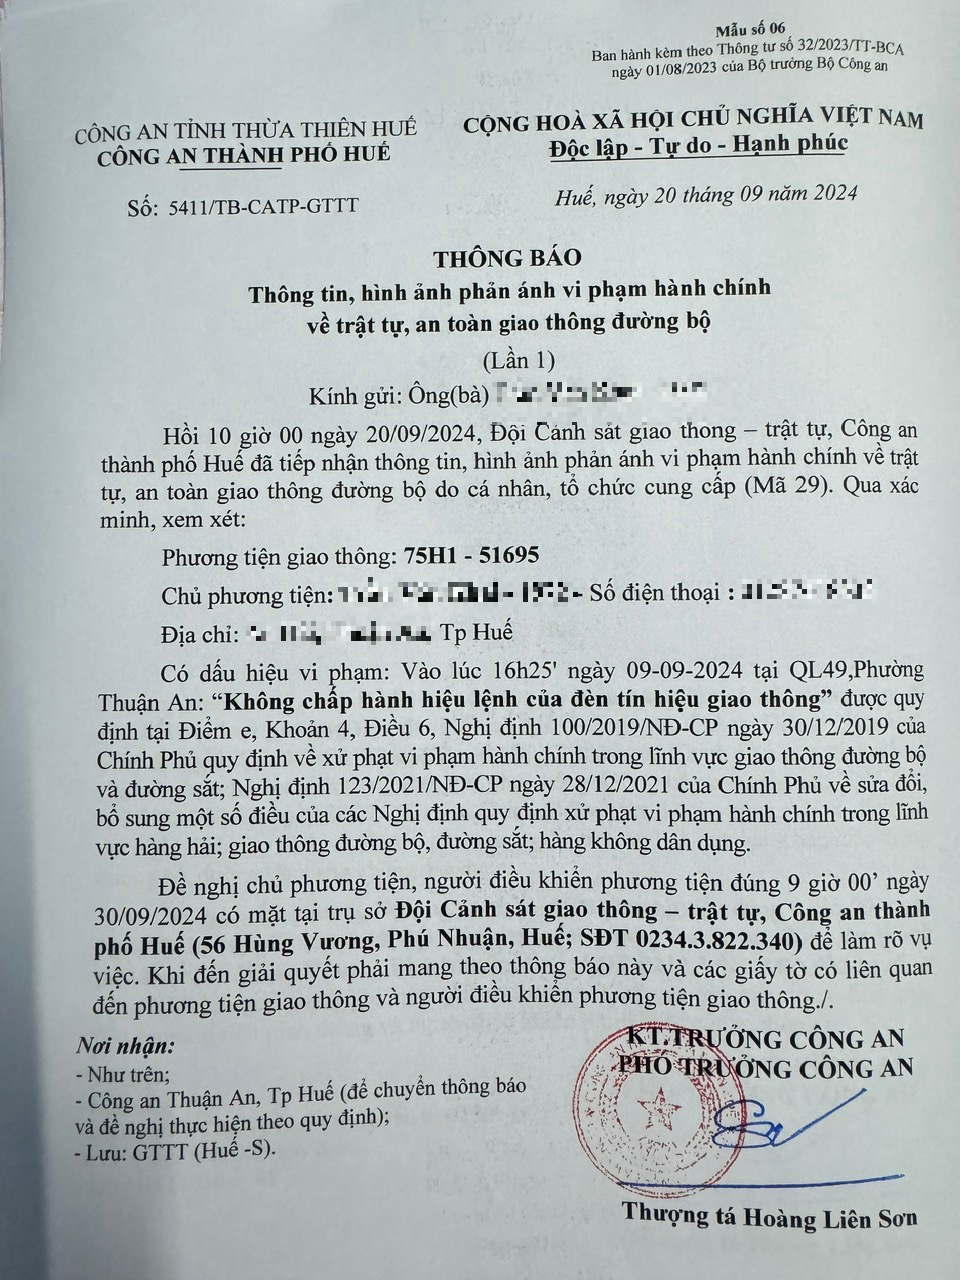 Mẫu số 06
Ban hành kèm theo Thông tư số 32/2023/TT-BCA
ngày 01/08/2023 của Bộ trưởng Bộ Công an
CÔNG AN TỈNH THỪA THIÊN HUẾ
CÔNG AN THÀNH PHỐ HUẾ
Số: 5411/TB-CATP-GTTT
CỘNG HOÀ XÃ HỘI CHỦ NGHĨA VIỆT NAM
Độc lập - Tự do - Hạnh phúc
Huế, ngày 20 tháng 09 năm 2024
THÔNG BÁO
Thông tin, hình ảnh phản ánh vi phạm hành chính
về trật tự, an toàn giao thông đường bộ
(Lần 1)
Kính gửi: Ông(bà)
Hồi 10 giờ 00 ngày 20/09/2024, Đội Cảnh sát giao thong – trật tự, Công an
thành phố Huế đã tiếp nhận thông tin, hình ảnh phản ánh vi phạm hành chính về trật
tự, an toàn giao thông đường bộ do cá nhân, tổ chức cung cấp (Mã 29). Qua xác
minh, xem xét:
Phương tiện giao thông: 75H1 - 51695
Chủ phương tiện: - Số điện thoại :
Địa chỉ: Tp Huế
Có dấu hiệu vi phạm: Vào lúc 16h25' ngày 09-09-2024 tại QL49,Phường
Thuận An: “Không chấp hành hiệu lệnh của đèn tín hiệu giao thông” được quy
định tại Điểm e, Khoản 4, Điều 6, Nghị định 100/2019/NĐ-CP ngày 30/12/2019 của
Chính Phủ quy định về xử phạt vi phạm hành chính trong lĩnh vực giao thông đường bộ
và đường sắt; Nghị định 123/2021/NĐ-CP ngày 28/12/2021 của Chính Phủ về sửa đổi,
bổ sung một số điều của các Nghị định quy định xử phạt vi phạm hành chính trong lĩnh
vực hàng hải; giao thông đường bộ, đường sắt; hàng không dân dụng.
Đề nghị chủ phương tiện, người điều khiển phương tiện đúng 9 giờ 00’ ngày
30/09/2024 có mặt tại trụ sở Đội Cảnh sát giao thông – trật tự, Công an thành
phố Huế (56 Hùng Vương, Phú Nhuận, Huế; SĐT 0234.3.822.340) để làm rõ vụ
việc. Khi đến giải quyết phải mang theo thông báo này và các giấy tờ có liên quan
đến phương tiện giao thông và người điều khiển phương tiện giao thông./.
Nơi nhận:
- Như trên;
- Công an Thuận An, Tp Huế (để chuyển thông báo
và đề nghị thực hiện theo quy định);
- Lưu: GTTT (Huế -S).
KT.TRƯỞNG CÔNG AN
PHÓ TRƯỞNG CÔNG AN
Thượng tá Hoàng Liên Sơn